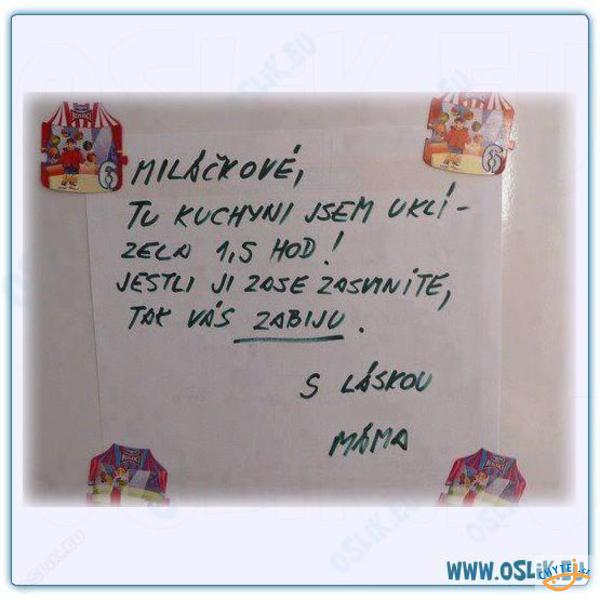 MILÁČKOVÉ,
TU KUCHYNI JSEM UKLÍ-
ZELA 1,5 HOD!
JESTLI JI ZASE ZASVINÍTE,
TAK VÁS ZABIJU.
S LÁSKOU
MÁMA
www.OSLiK.EU